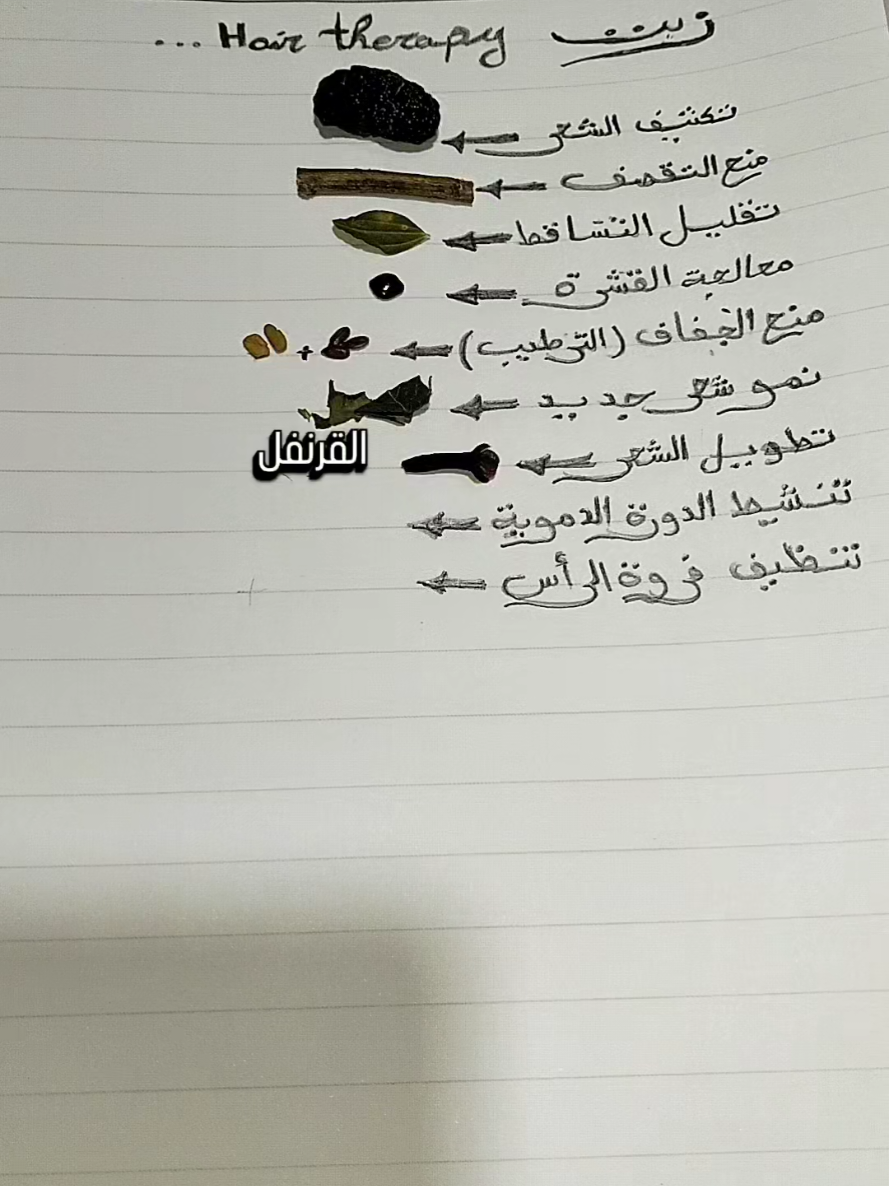 زيت Hair therapy ...
تكثيف الشعر
منع التقصف
تقليل التساقط
معالجة القشرة
منع الجفاف (الترطيب)
+
نمو شعر جديد
تطويل الشعر
القرنفل
تنشيط الدورة الدموية
تنظيف فروة الرأس